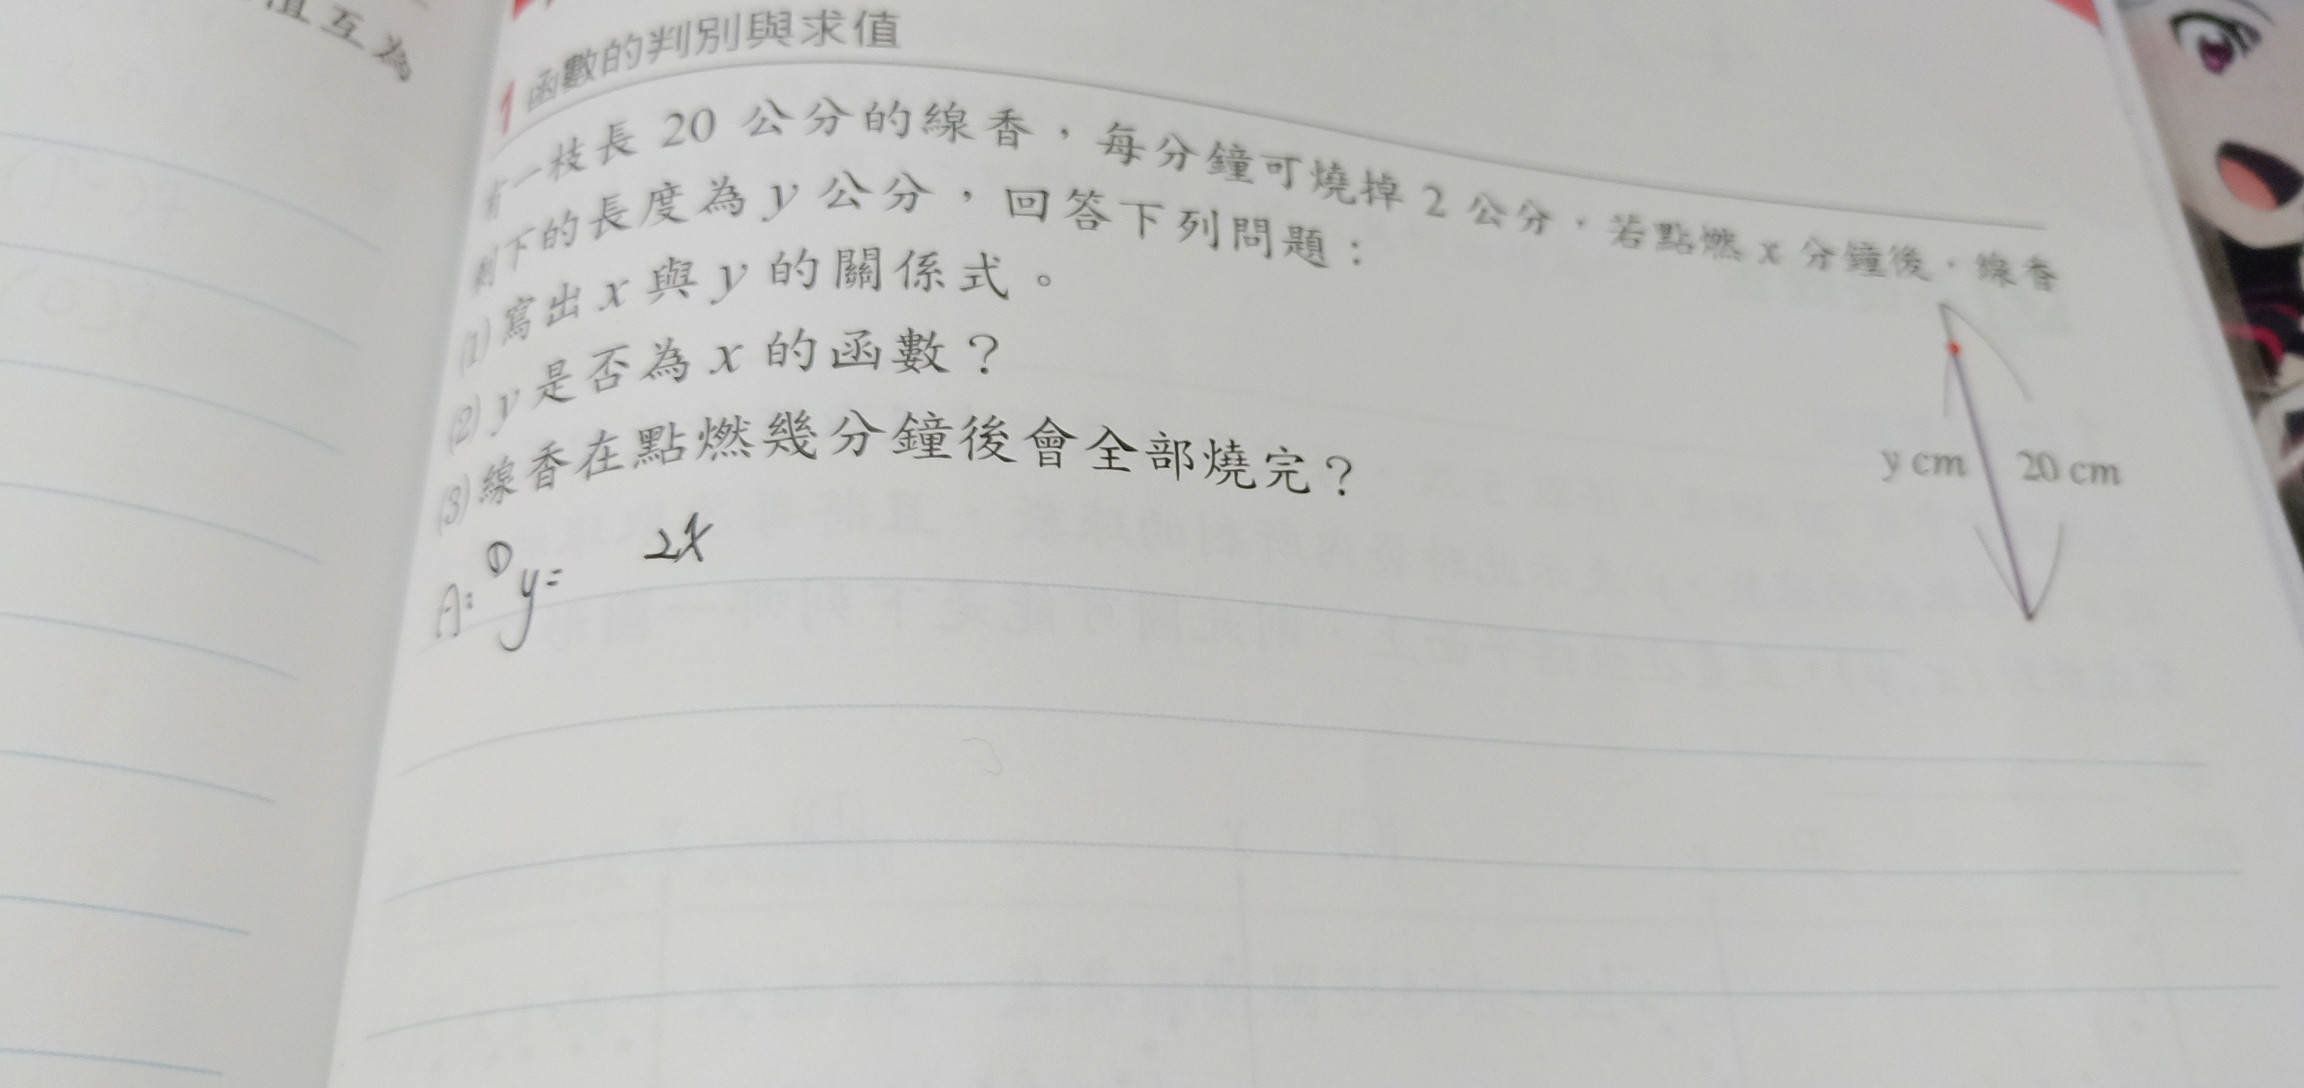 值互為
1 函數的判別與求值
有一枝長 20 公分的線香，每分鐘可燒掉 2 公分，若點燃 x 分鐘後，線香
剩下的長度為 y 公分，回答下列問題：
(1) 寫出 x 與 y 的關係式。
(2) y 是否為 x 的函數？
(3) 線香在點燃幾分鐘後會全部燒完？
y cm 20 cm
A: ① y= 2x